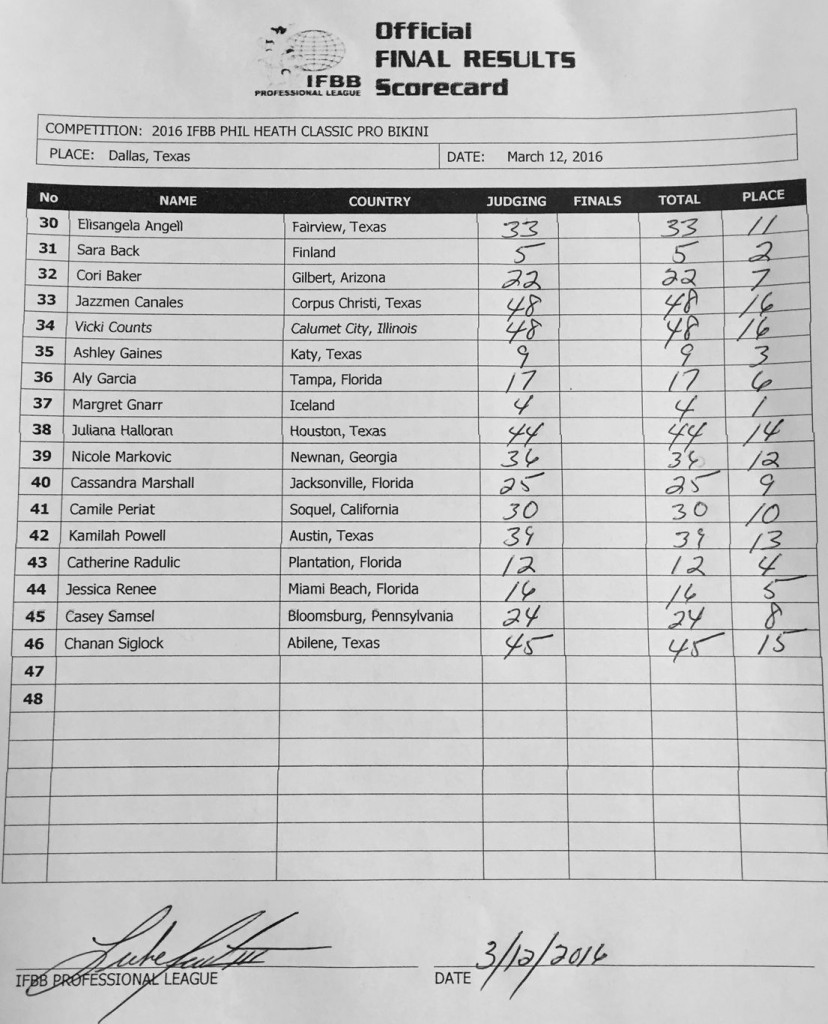 Official
FINAL RESULTS
Scorecard
IFBB
PROFESSIONAL LEAGUE
COMPETITION: 2016 IFBB PHIL HEATH CLASSIC PRO BIKINI
PLACE: Dallas, Texas DATE: March 12, 2016
No NAME COUNTRY JUDGING FINALS TOTAL PLACE
30 Elisangela Angell Fairview, Texas 33 33 11
31 Sara Back Finland 5 5 2
32 Cori Baker Gilbert, Arizona 22 22 7
33 Jazzmen Canales Corpus Christi, Texas 48 48 16
34 Vicki Counts Calumet City, Illinois 48 48 16
35 Ashley Gaines Katy, Texas 9 9 3
36 Aly Garcia Tampa, Florida 17 17 6
37 Margret Gnarr Iceland 4 4 1
38 Juliana Halloran Houston, Texas 44 44 14
39 Nicole Markovic Newnan, Georgia 36 36 12
40 Cassandra Marshall Jacksonville, Florida 25 25 9
41 Camile Periat Soquel, California 30 30 10
42 Kamilah Powell Austin, Texas 39 39 13
43 Catherine Radulic Plantation, Florida 12 12 4
44 Jessica Renee Miami Beach, Florida 16 16 5
45 Casey Samsel Bloomsburg, Pennsylvania 24 24 8
46 Chanan Siglock Abilene, Texas 45 45 15
47
48
3/12/2016
IFBB PROFESSIONAL LEAGUE DATE